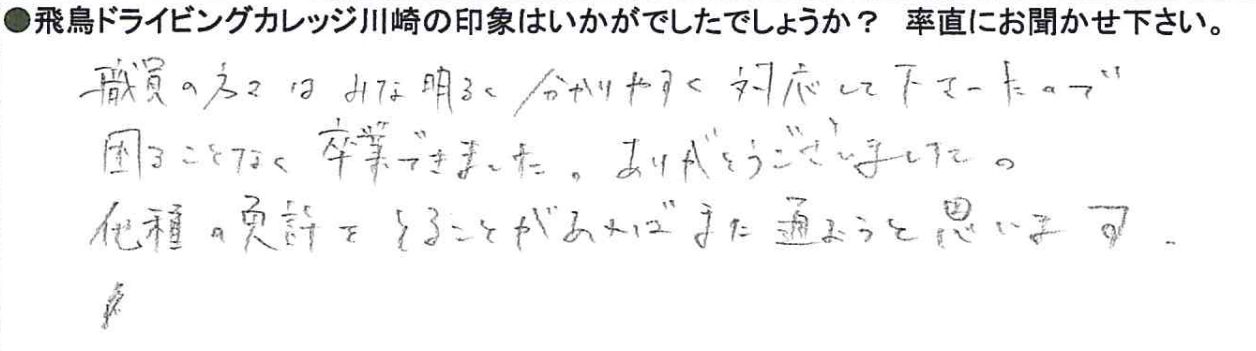 ●飛鳥ドライビングカレッジ川崎の印象はいかがでしたでしょうか？ 率直にお聞かせ下さい。
職員の方々はみな明るく分かりやすく対応して下さったので
困ることなく卒業できました。ありがとうございました。
他種の免許をとることがあればまた通おうと思います.